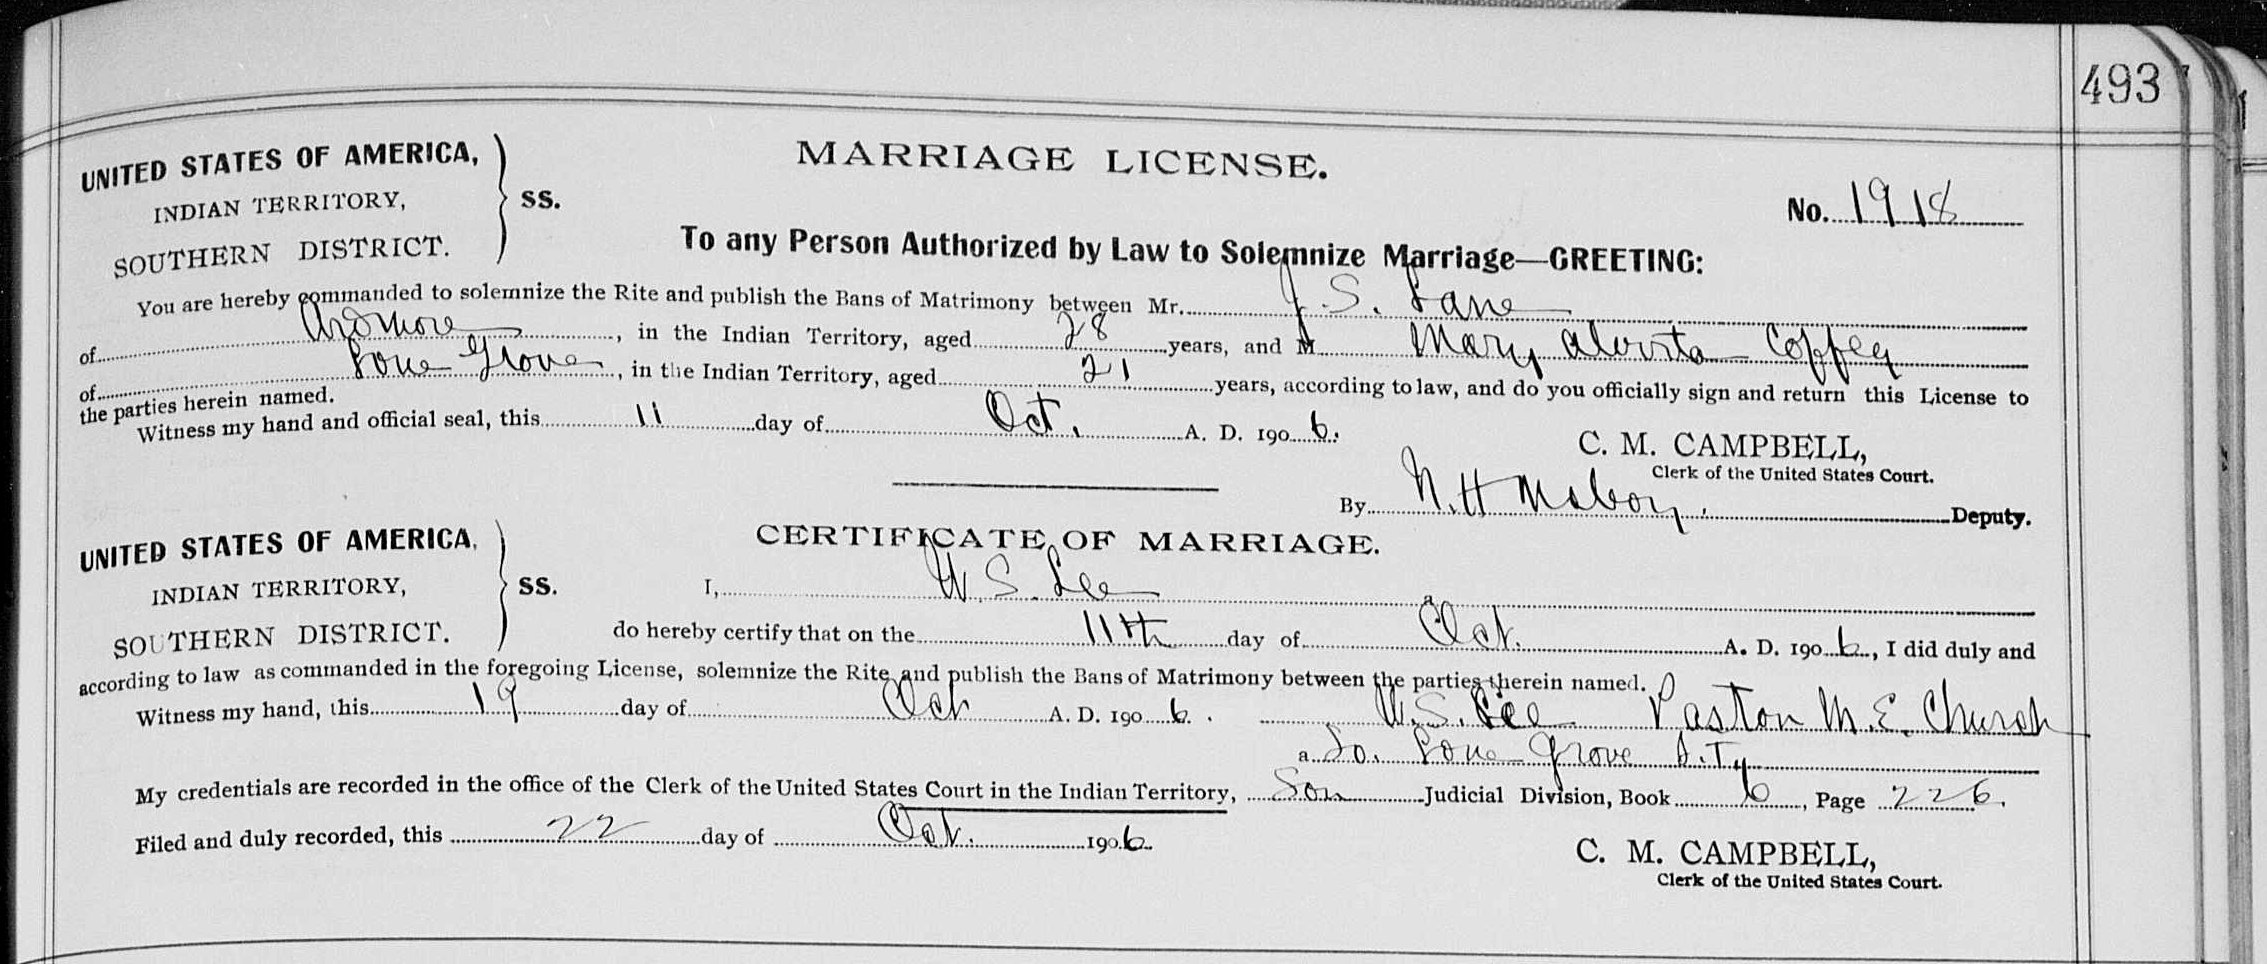 493
UNITED STATES OF AMERICA,
INDIAN TERRITORY,
SOUTHERN DISTRICT.
SS.
MARRIAGE LICENSE.
No. 1918
To any Person Authorized by Law to Solemnize Marriage—GREETING:
You are hereby commanded to solemnize the Rite and publish the Bans of Matrimony between Mr. J. S. Lane
of Ardmore, in the Indian Territory, aged 28 years, and M Mary Alverta Coffey
of Lone Grove, in the Indian Territory, aged 21 years, according to law, and do you officially sign and return this License to
the parties herein named.
Witness my hand and official seal, this 11 day of Oct. A. D. 1906.
C. M. CAMPBELL,
Clerk of the United States Court.
By N. H. McCoy, Deputy.
UNITED STATES OF AMERICA,
INDIAN TERRITORY,
SOUTHERN DISTRICT.
SS.
CERTIFICATE OF MARRIAGE.
I, W. S. Lee
do hereby certify that on the 11th day of Oct. A. D. 1906, I did duly and
according to law as commanded in the foregoing License, solemnize the Rite and publish the Bans of Matrimony between the parties therein named.
Witness my hand, this 19 day of Oct A. D. 1906. W. S. Lee Pastor M. E. Church
a So. Lone Grove I. Ty
My credentials are recorded in the office of the Clerk of the United States Court in the Indian Territory, Son Judicial Division, Book 6, Page 226.
Filed and duly recorded, this 22 day of Oct. 1906
C. M. CAMPBELL,
Clerk of the United States Court.